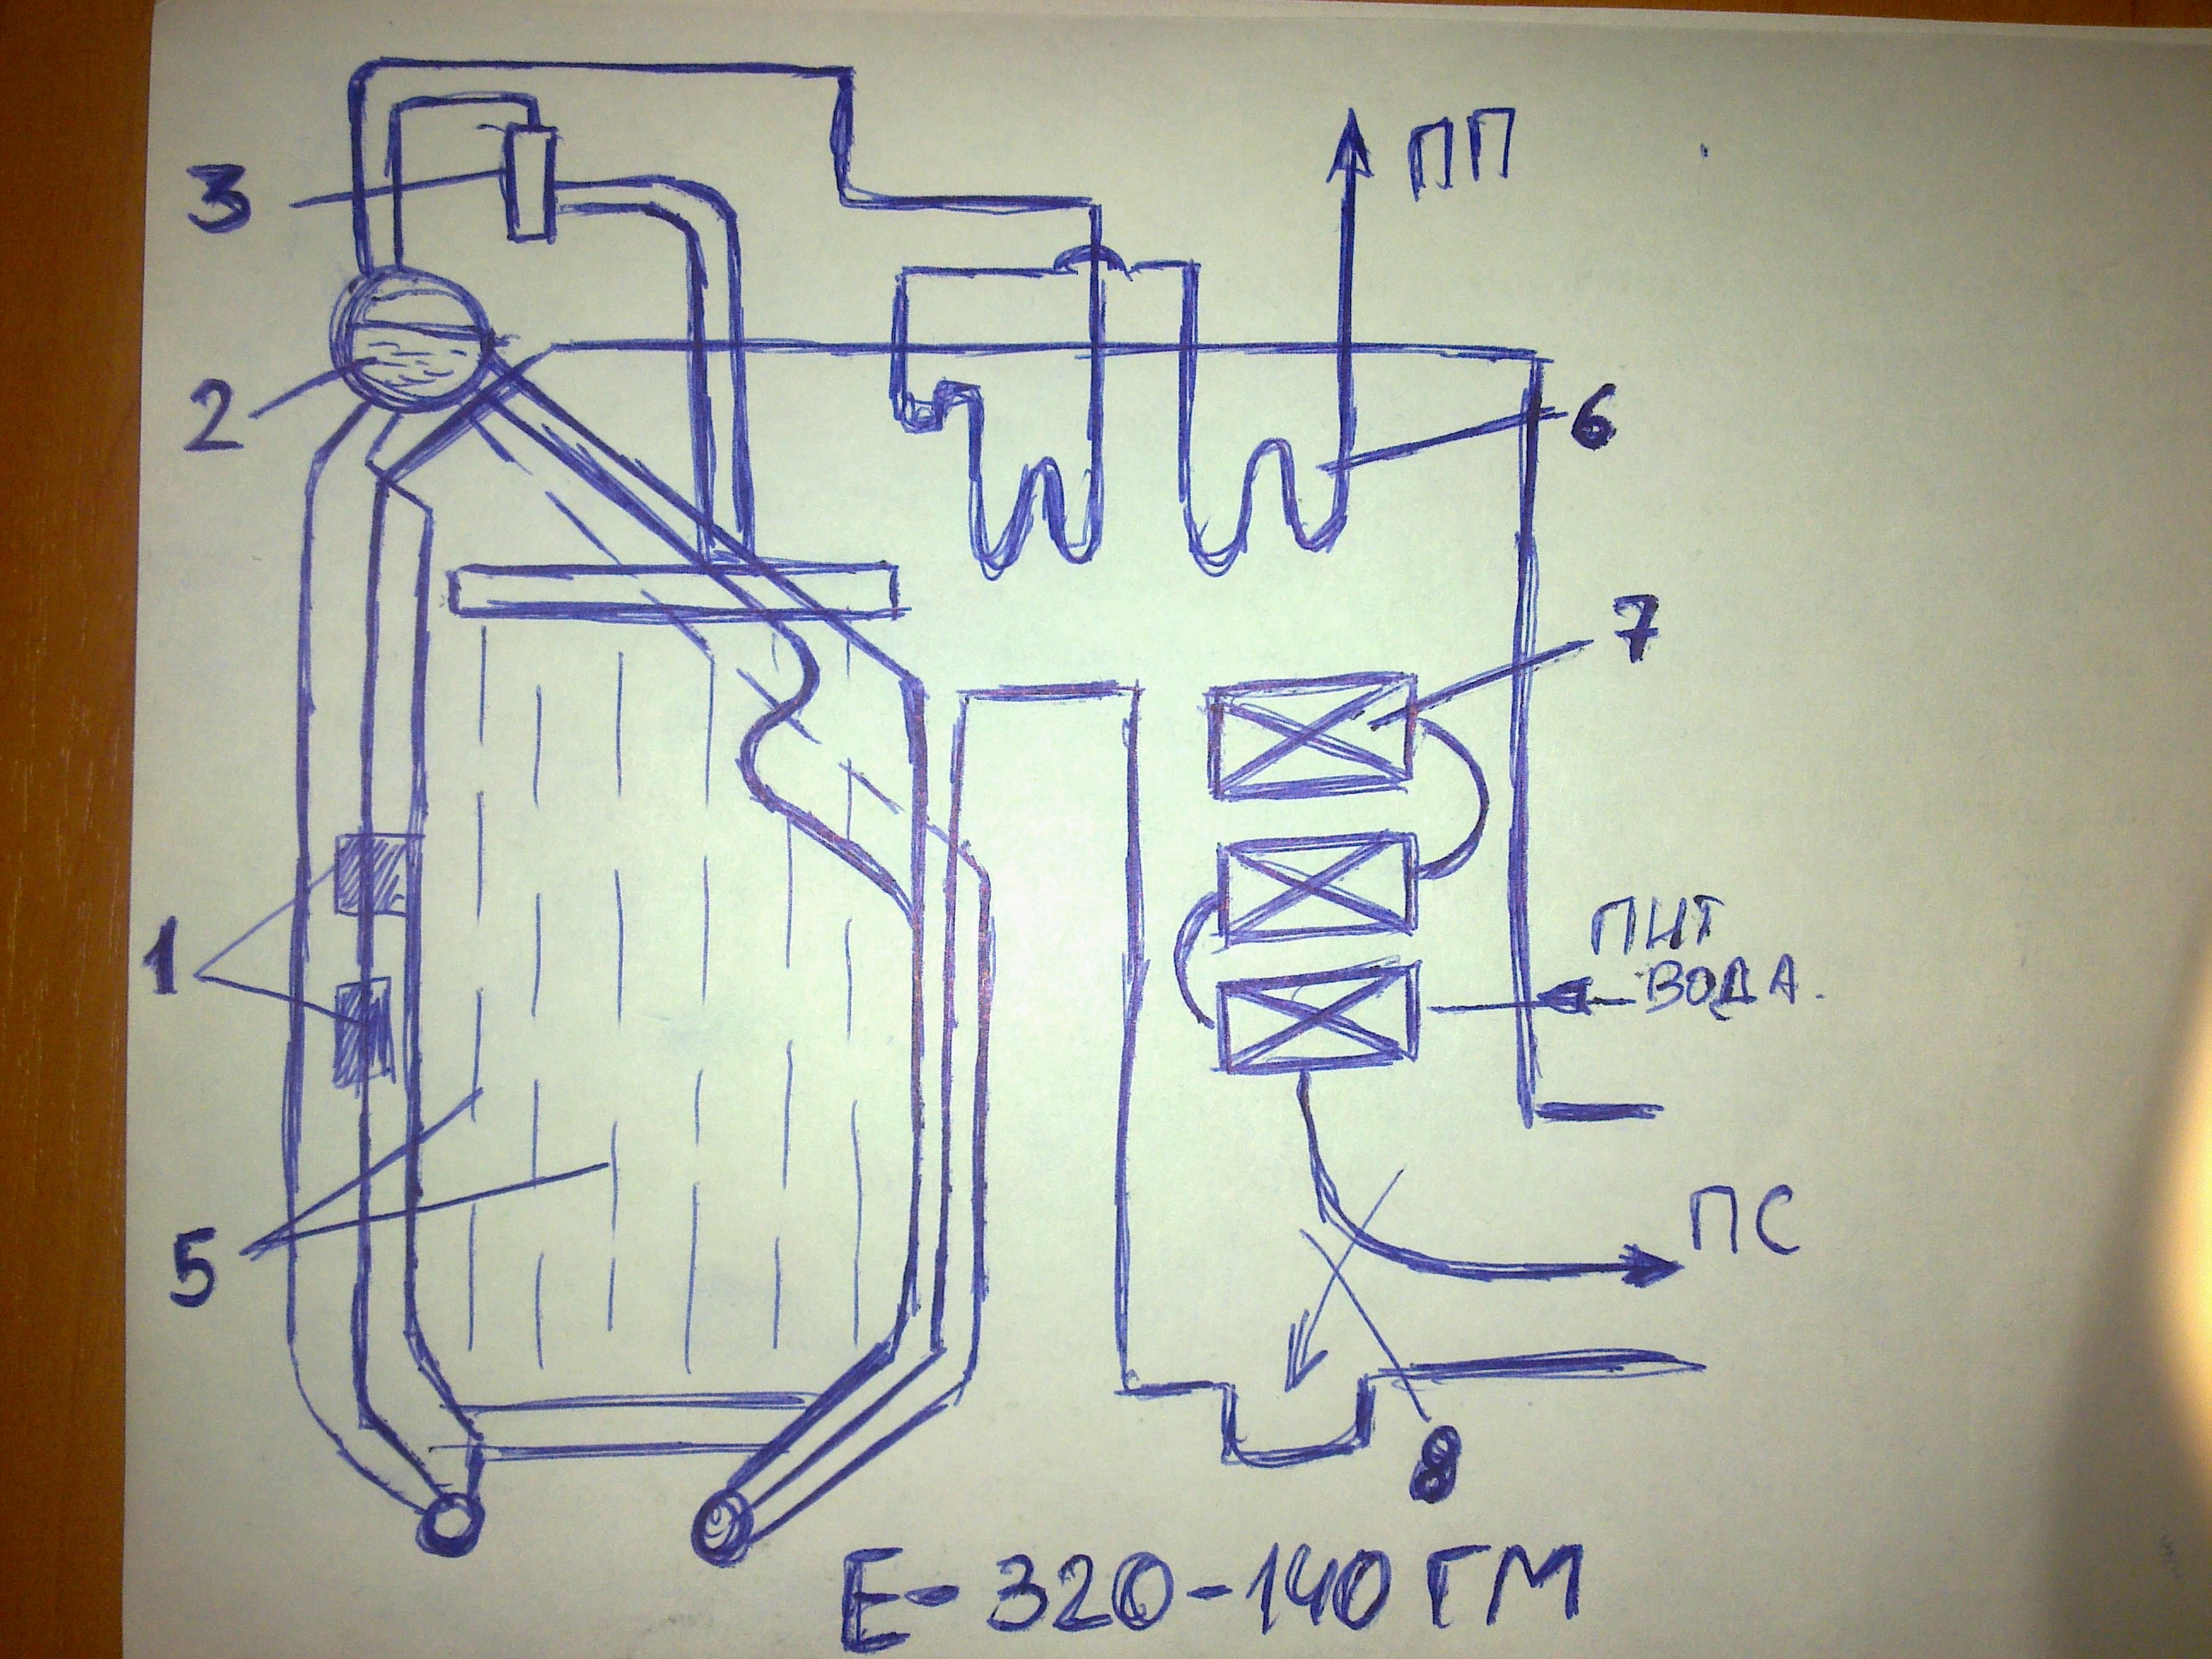 ПП
3
2
6
7
1
ПИТ
ВОДА.
5
ПС
8
Е-320-140 ГМ